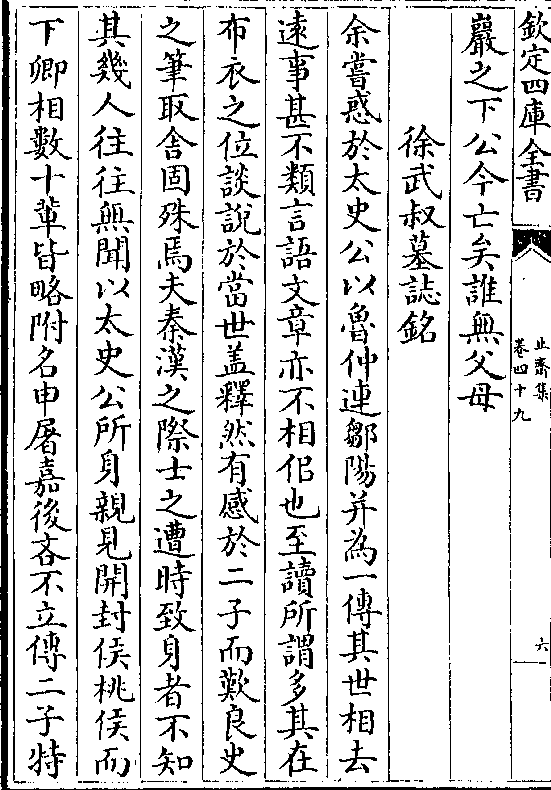 欽定四庫全書
止齋集
卷四十九
六
巖之下公今亡矣誰無父母
徐武叔墓誌銘
余嘗惑於太史公以魯仲連鄒陽并為一傳其世相去
逺事甚不類言語文章亦不相佀也至讀所謂多其在
布衣之位談說於當世盖釋然有感於二子而歎良史
之筆取舍固殊焉夫秦漢之際士之遭時致身者不知
其幾人往往無聞以太史公所身親見開封侯桃侯而
下卿相數十輩皆略附名申屠嘉後吝不立傳二子特